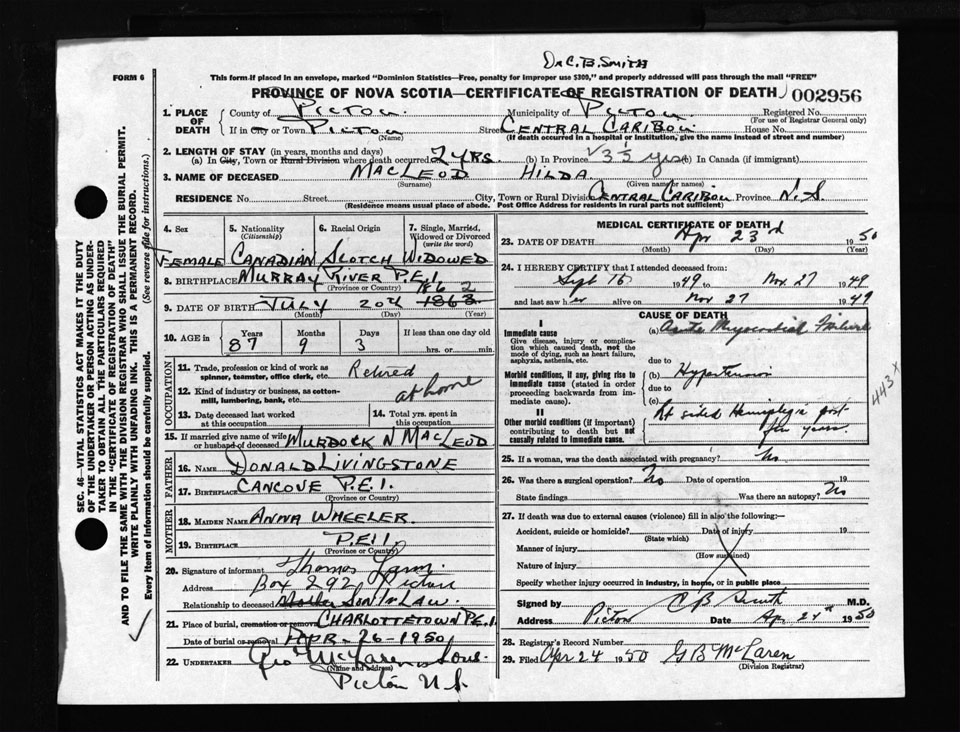 Dr C. B. Smith
FORM 6
This form if placed in an envelope, marked "Dominion Statistics—Free, penalty for improper use $300," and properly addressed will pass through the mail "FREE"
PROVINCE OF NOVA SCOTIA—CERTIFICATE OF REGISTRATION OF DEATH
002956
1. PLACE OF DEATH
County of Pictou Municipality of Pictou Registered No.
(For use of Registrar General only)
If in City or Town Pictou Street CENTRAL CARIBOU House No.
(Name) (If death occurred in a hospital or institution, give the name instead of street and number)
2. LENGTH OF STAY (in years, months and days)
(a) In City, Town or Rural Division where death occurred 2 YRS. (b) In Province 35 yrs (c) In Canada (if immigrant)
3. NAME OF DECEASED MACLEOD HILDA
(Surname) (Given name or names)
RESIDENCE No. Street City, Town or Rural Division CENTRAL CARIBOU Province N.S
(Residence means usual place of abode. Post Office Address for residents in rural parts not sufficient)
4. Sex 5. Nationality (Citizenship) 6. Racial Origin 7. Single, Married, Widowed or Divorced (write the word)
FEMALE CANADIAN SCOTCH WIDOWED
8. BIRTHPLACE MURRAY RIVER P.E.I.
(Province or Country)
1862
9. DATE OF BIRTH JULY 20th 1863
(Month) (Day) (Year)
10. AGE in Years Months Days If less than one day old
87 9 3 hrs. or min.
OCCUPATION
11. Trade, profession or kind of work as spinner, teamster, office clerk, etc. Retired
12. Kind of industry or business, as cotton-mill, lumbering, bank, etc. at home
13. Date deceased last worked at this occupation
14. Total yrs. spent in this occupation
15. If married give name of wife or husband of deceased MURDOCK N MACLEOD
FATHER
16. NAME DONALD LIVINGSTONE
17. BIRTHPLACE CANCOVE P.E.I.
(Province or Country)
MOTHER
18. MAIDEN NAME ANNA WHEELER.
19. BIRTHPLACE P.E.I.
(Province or Country)
20. Signature of informant Thomas
Address Box 292 Pictou
Relationship to deceased Mother SON IN LAW.
21. Place of burial, cremation or removal CHARLOTTETOWN P.E.I.
Date of burial or removal APR-26-1950
22. UNDERTAKER Geo McLaren & Sons.
(Name and address)
Pictou N.S.
MEDICAL CERTIFICATE OF DEATH
23. DATE OF DEATH Apr 23rd 1950
(Month) (Day) (Year)
24. I HEREBY CERTIFY that I attended deceased from:
Sept 16 1949 to Nov. 27 1949
and last saw her alive on Nov 27 1949
CAUSE OF DEATH
I
Immediate cause
Give disease, injury or complication which caused death, not the mode of dying, such as heart failure, asphyxia, asthenia, etc.
(a) Acute Myocardial Failure
due to
Morbid conditions, if any, giving rise to immediate cause (stated in order proceeding backwards from immediate cause).
(b) Hypertension
due to
(c)
II
Other morbid conditions (if important) contributing to death but not causally related to immediate cause.
Rt sided Hemiplegia past few years.
443X
25. If a woman, was the death associated with pregnancy? No
26. Was there a surgical operation? No Date of operation 19
State findings Was there an autopsy? No
27. If death was due to external causes (violence) fill in also the following:—
Accident, suicide or homicide? Date of injury 19
(State which)
Manner of injury
(How sustained)
Nature of injury
Specify whether injury occurred in industry, in home, or in public place
Signed by C B Smith M.D.
Address Pictou Date Apr. 24th 1950
28. Registrar's Record Number
29. Filed Apr 24 1950 G B McLaren
(Division Registrar)
SEC. 46—VITAL STATISTICS ACT MAKES IT THE DUTY
OF THE UNDERTAKER OR PERSON ACTING AS UNDER-
TAKER TO OBTAIN ALL THE PARTICULARS REQUIRED
IN THE "CERTIFICATE OF REGISTRATION OF DEATH"
AND TO FILE THE SAME WITH THE DIVISION REGISTRAR WHO SHALL ISSUE THE BURIAL PERMIT.
WRITE PLAINLY WITH UNFADING INK. THIS IS A PERMANENT RECORD.
Every item of information should be carefully supplied. (See reverse side for instructions.)